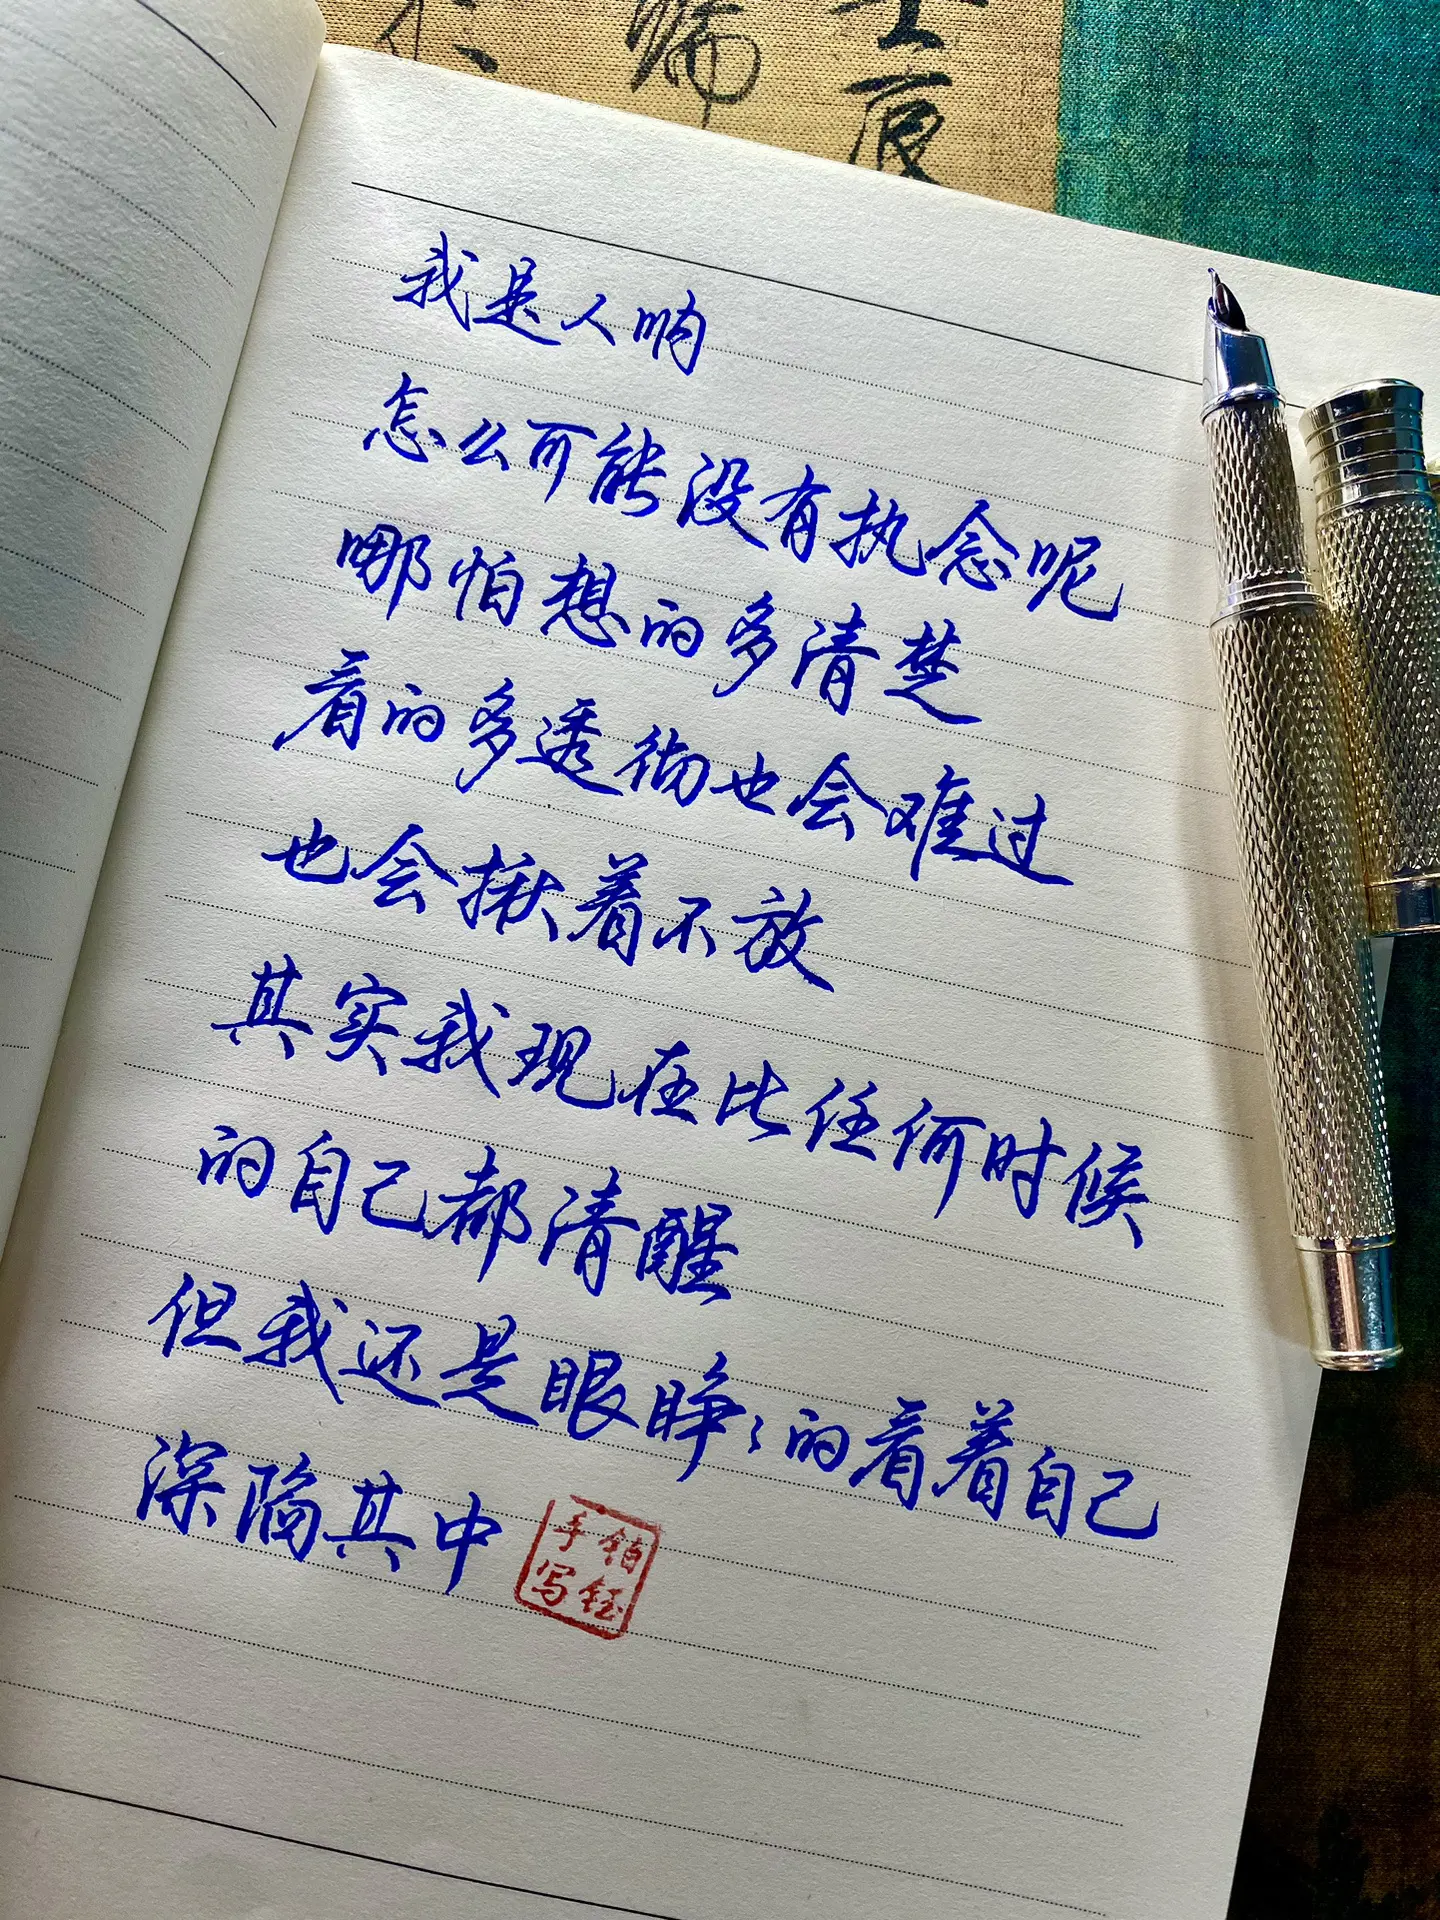 我是人呐
怎么可能没有执念呢
哪怕想的多清楚
看的多透彻也会难过
也会揪着不放
其实我现在比任何时候
的自己都清醒
但我还是眼睁睁的看着自己
深陷其中
铂钰
手写